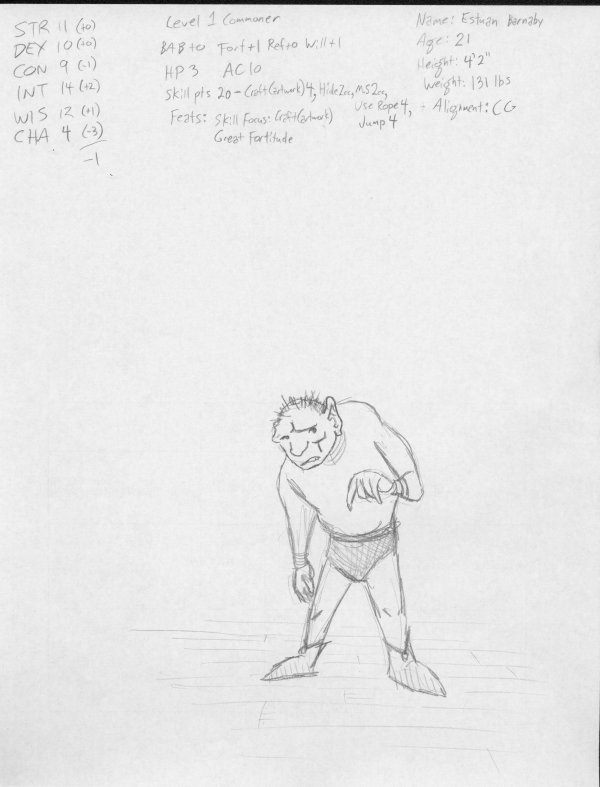 STR 11 (+0)
DEX 10 (+0)
CON 9 (-1)
INT 14 (+2)
WIS 12 (+1)
CHA 4 (-3)
-1
Level 1 Commoner
BAB +0 Fort +1 Ref +0 Will +1
HP 3 AC 10
Skill pts 20 - Craft (artwork) 4, Hide 2cc, MS 2cc,
Use Rope 4,
Jump 4
Feats: Skill Focus: Craft (artwork)
Great Fortitude
Name: Estuan Barnaby
Age: 21
Height: 4'2"
Weight: 131 lbs
- Alignment: CG